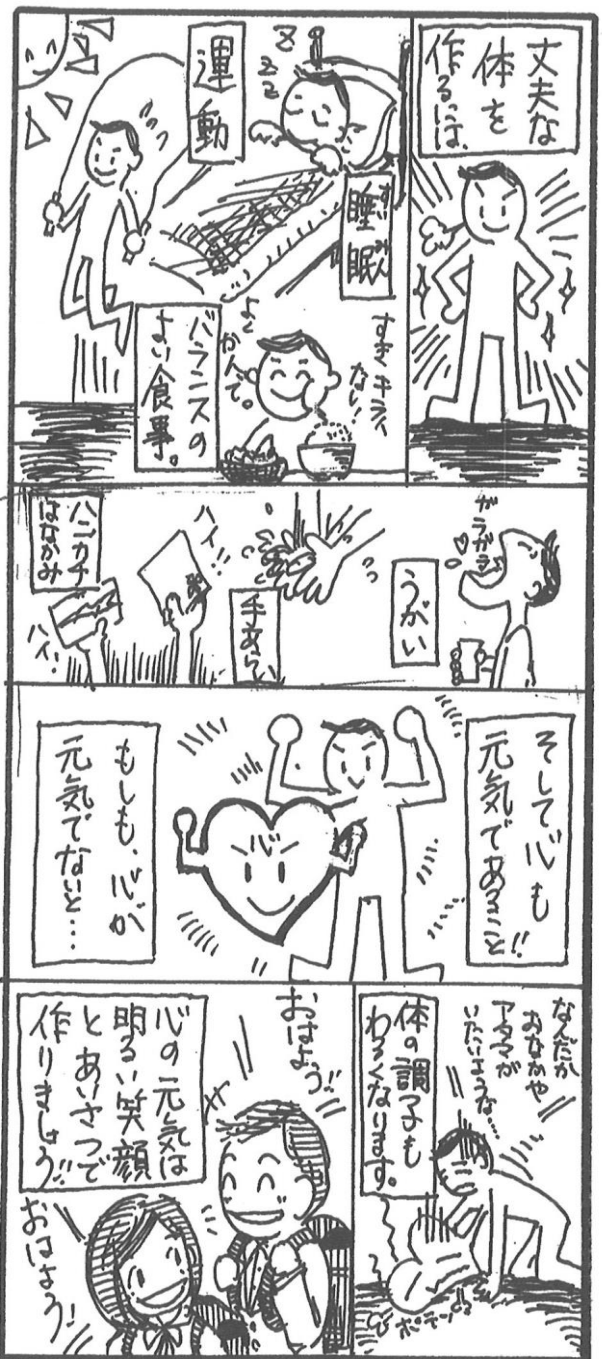 丈夫な
体を
作るには、
Z
Z
Z
Z
すいみん
睡眠
運動
すきキライ
ない!
よく
かんで。
バランスの
よい食事。
ガラガラ
うがい
手あらい
ハイ!!
ハンカチ
はなかみ
ハイ!
そして心も
元気であること!!
心
もしも、心が
元気でないと…
なんだか
おなかや
アタマが
いたいような…
体の調子も
わるくなります。
ポテン
おはよう!!
心の元気は
明るい笑顔
とあいさつで
作りましょう!!
おはよう!